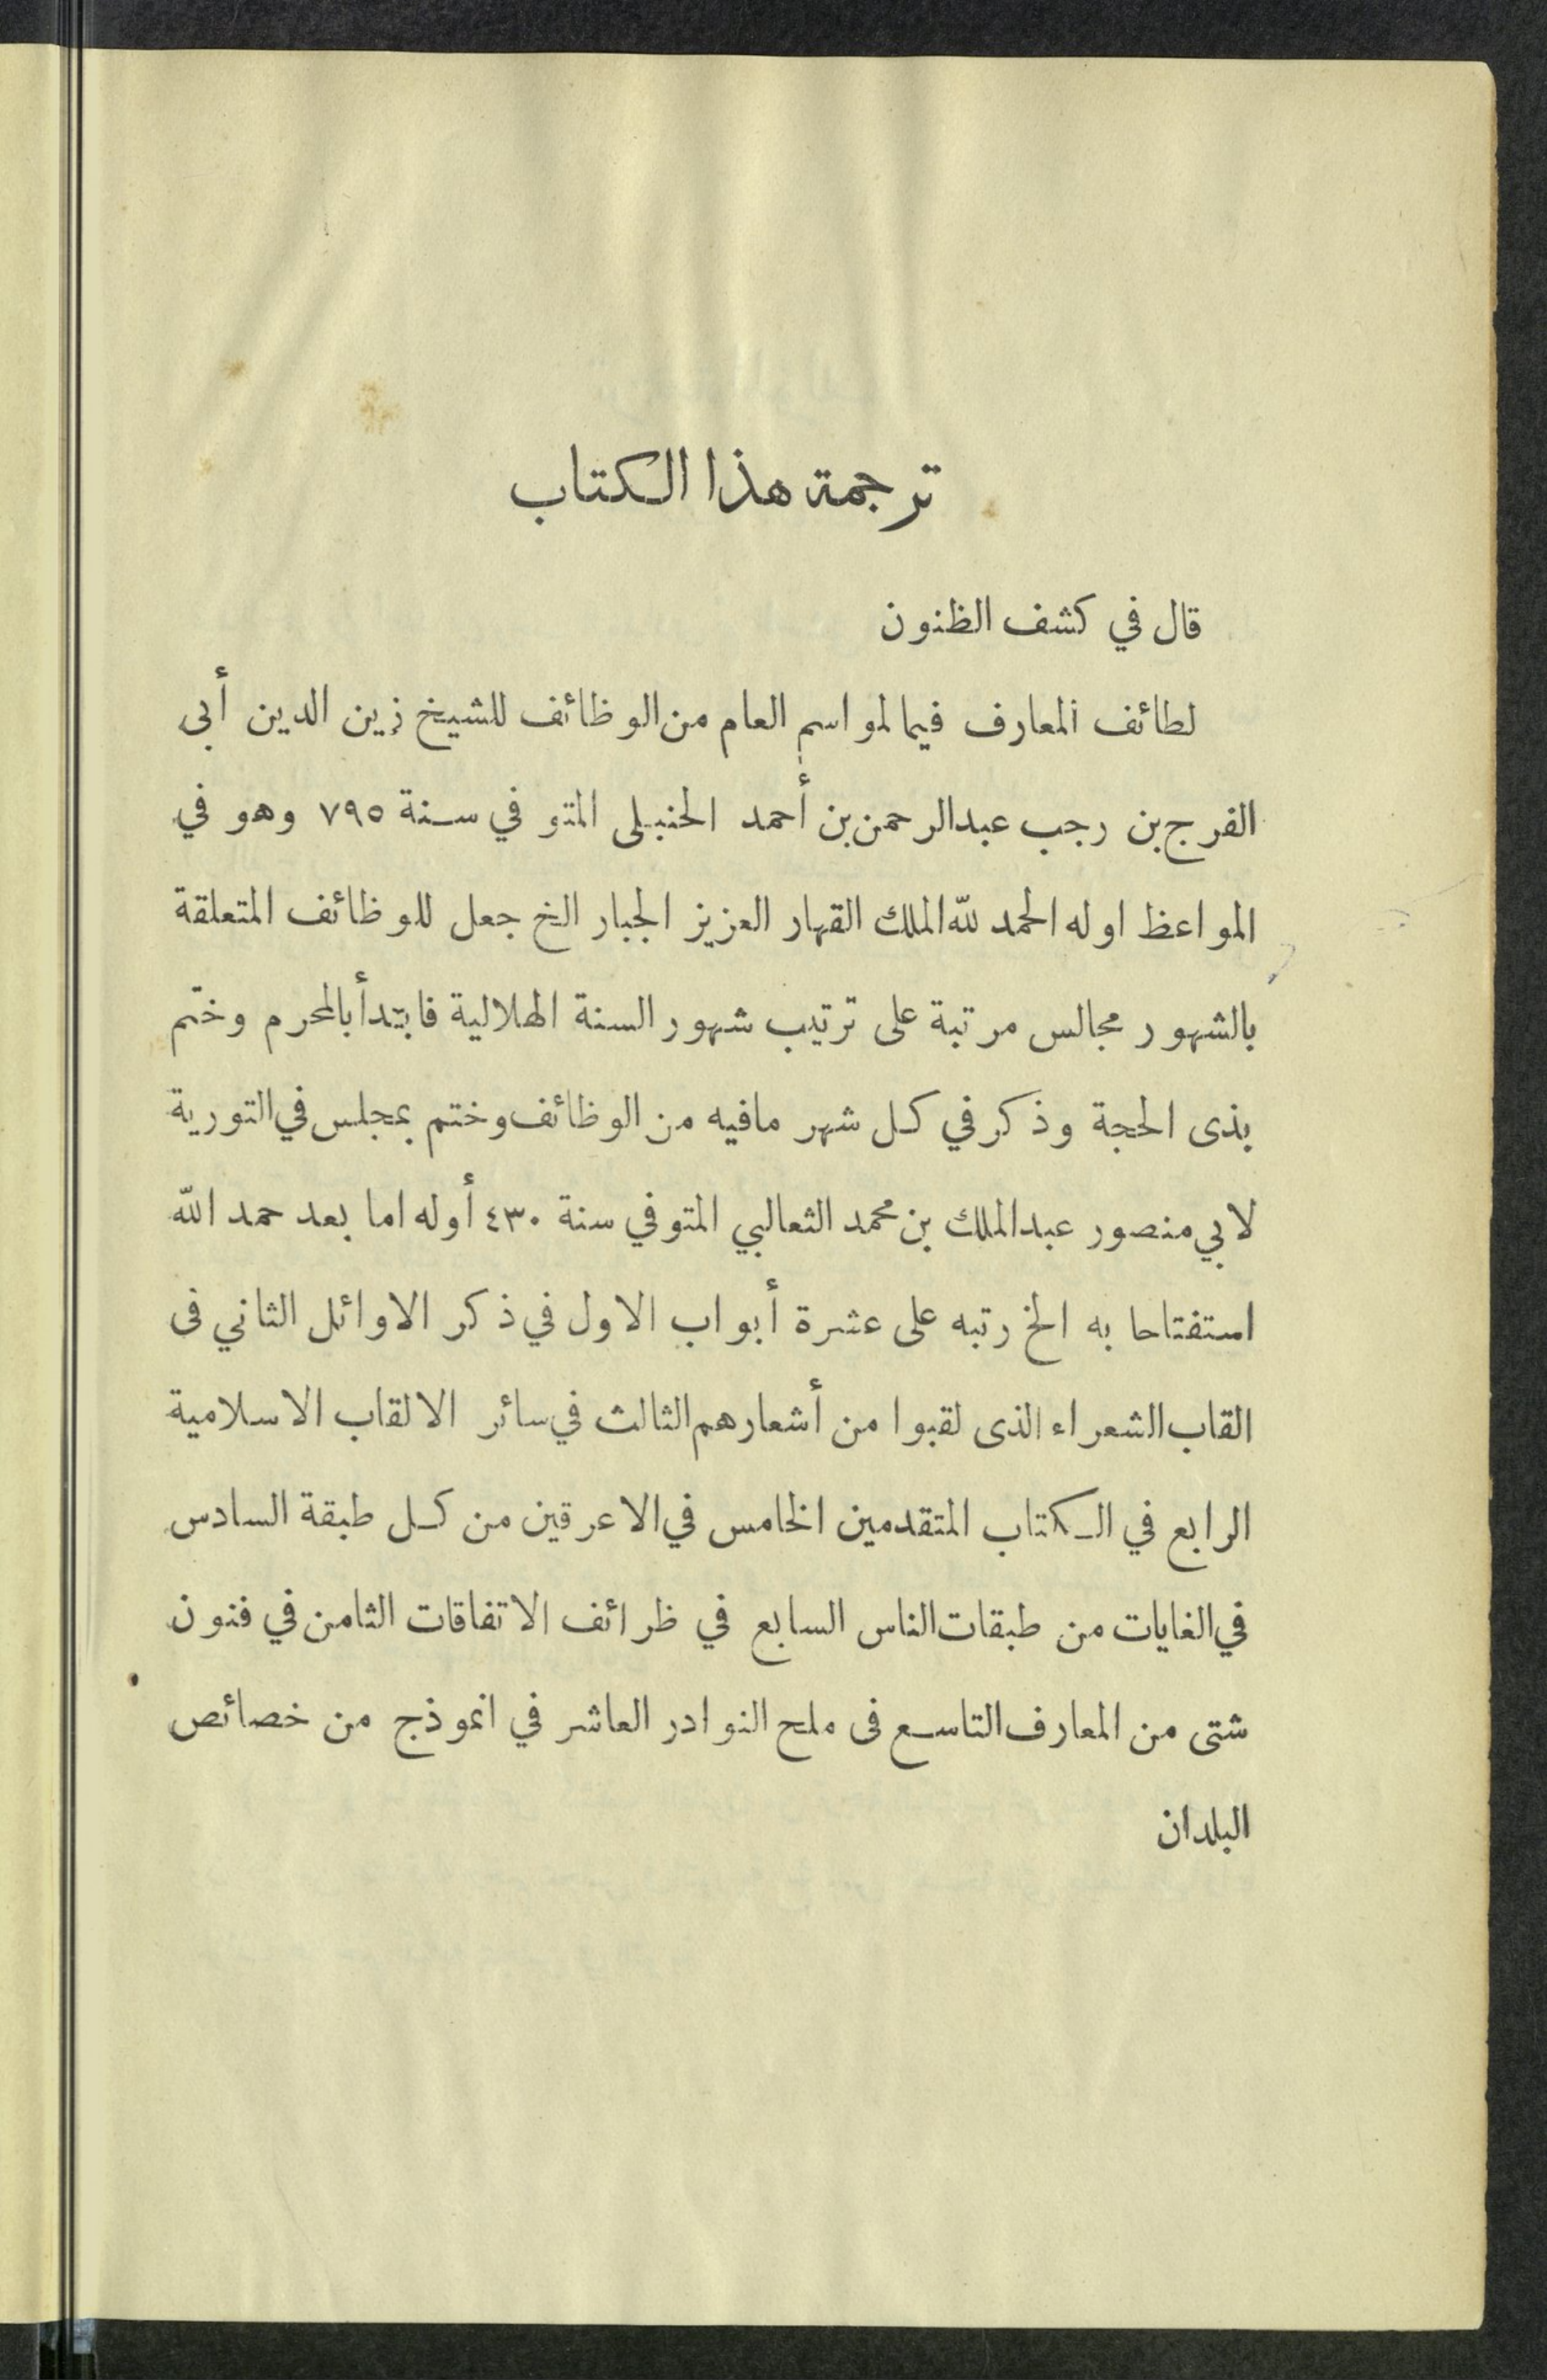 ترجمة هذا الكتاب
قال في كشف الظنون
لطائف المعارف فيما لمواسم العام من الوظائف للشيخ زين الدين أبى
الفرج بن رجب عبد الرحمن بن أحمد الحنبلى المتوفي سنة ٧٩٥ وهو في
المواعظ اوله الحمد لله الملك القهار العزيز الجبار الخ جعل للوظائف المتعلقة
بالشهور مجالس مرتبة على ترتيب شهور السنة الهلالية فابتدأ بالمحرم وختم
بذى الحجة وذكر في كل شهر مافيه من الوظائف وختم بمجلس في التورية
لابي منصور عبد الملك بن محمد الثعالبي المتوفي سنة ٤٣٠ أوله اما بعد حمد الله
استفتاحا به الخ رتبه على عشرة أبواب الاول في ذكر الاوائل الثاني فى
القاب الشعراء الذى لقبوا من أشعارهم الثالث في سائر الالقاب الاسلامية
الرابع في الكتاب المتقدمين الخامس في الاعرقين من كل طبقة السادس
في الغايات من طبقات الناس السابع في ظرائف الاتفاقات الثامن في فنون
شتى من المعارف التاسع فى ملح النوادر العاشر في انموذج من خصائص
البلدان